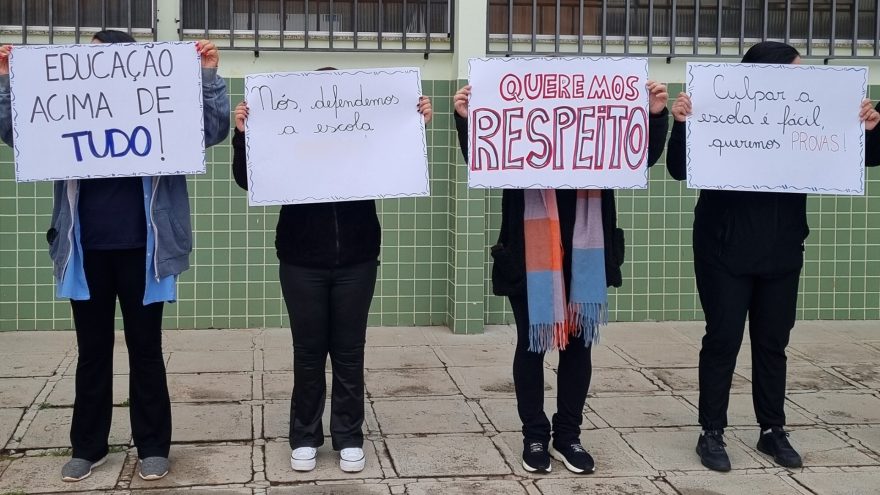 EDUCAÇÃO
ACIMA DE
TUDO!
Nós, defendemos
a escola
QUEREMOS
RESPEITO
Culpar a
escola é fácil,
queremos PROVAS!